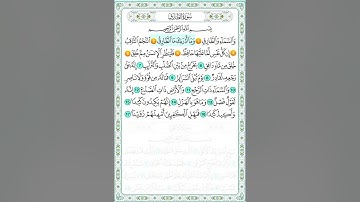 سُورَةُ ٱلطَّارِقِ
بِسْمِ ٱللَّهِ ٱلرَّحْمَٰنِ ٱلرَّحِيمِ
وَٱلسَّمَآءِ وَٱلطَّارِقِ ١ وَمَآ أَدْرَىٰكَ مَا ٱلطَّارِقُ ٢ ٱلنَّجْمُ ٱلثَّاقِبُ
٣ إِن كُلُّ نَفْسٍ لَّمَّا عَلَيْهَا حَافِظٌ ٤ فَلْيَنظُرِ ٱلْإِنسَٰنُ مِمَّ خُلِقَ ٥
خُلِقَ مِن مَّآءٍ دَافِقٍ ٦ يَخْرُجُ مِنۢ بَيْنِ ٱلصُّلْبِ وَٱلتَّرَآئِبِ ٧ إِنَّهُۥ عَلَىٰ
رَجْعِهِۦ لَقَادِرٌ ٨ يَوْمَ تُبْلَى ٱلسَّرَآئِرُ ٩ فَمَا لَهُۥ مِن قُوَّةٍ وَلَا نَاصِرٍ
١٠ وَٱلسَّمَآءِ ذَاتِ ٱلرَّجْعِ ١١ وَٱلْأَرْضِ ذَاتِ ٱلصَّدْعِ ١٢ إِنَّهُۥ
لَقَوْلٌ فَصْلٌ ١٣ وَمَا هُوَ بِٱلْهَزْلِ ١٤ إِنَّهُمْ يَكِيدُونَ كَيْدًا ١٥
وَأَكِيدُ كَيْدًا ١٦ فَمَهِّلِ ٱلْكَٰفِرِينَ أَمْهِلْهُمْ رُوَيْدًۢا ١٧